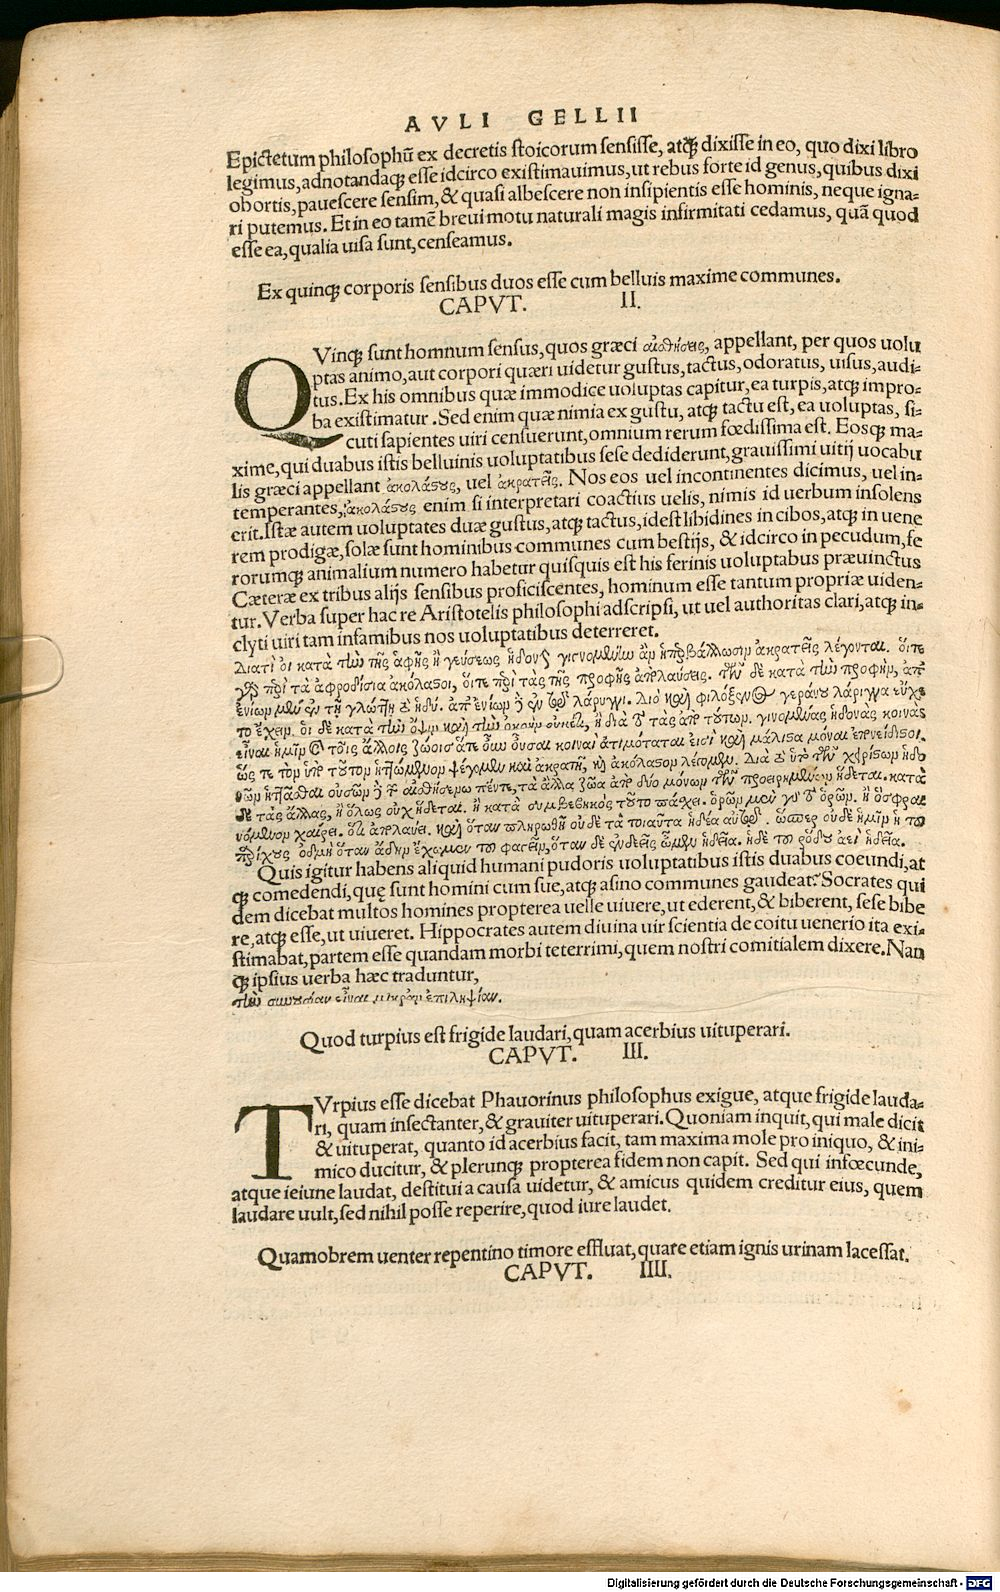 AVLI GELLII
Epictetum philosophũ ex decretis stoicorum sensisse, atq̃ dixisse in eo, quo dixi libro
legimus, adnotandaq̃ esse idcirco existimauimus, ut rebus forte id genus, quibus dixi
obortis, pauescere sensim, & quasi albescere non insipientis esse hominis, neque igna-
ri putemus. Et in eo tamẽ breui motu naturali magis infirmitati cedamus, quã quod
esse ea, qualia uisa sunt, censeamus.
Ex quinq̃ corporis sensibus duos esse cum belluis maxime communes.
CAPVT. II.
QVinq̃ sunt homnum sensus, quos græci αἰσθήσεις, appellant, per quos uolu
ptas animo, aut corpori quæri uidetur gustus, tactus, odoratus, uisus, audi-
tus. Ex his omnibus quæ immodice uoluptas capitur, ea turpis, atq̃ impro-
ba existimatur. Sed enim quæ nimia ex gustu, atq̃ tactu est, ea uoluptas, si-
cuti sapientes uiri censuerunt, omnium rerum fœdissima est. Eosq̃ ma-
xime, qui duabus istis belluinis uoluptatibus sese dediderunt, grauissimi uitij uocabu
lis græci appellant ἀκολάστους, uel ἀκρατεῖς. Nos eos uel incontinentes dicimus, uel in-
temperantes, ἀκολάστους enim si interpretari coactius uelis, nimis id uerbum insolens
erit. Istæ autem uoluptates duæ gustus, atq̃ tactus, id est libidines in cibos, atq̃ in uene
rem prodigæ, solæ sunt hominibus communes cum bestijs, & idcirco in pecudum, fe
rorumq̃ animalium numero habetur quisquis est his ferinis uoluptabus præuinctus
Cæteræ ex tribus alijs sensibus proficiscentes, hominum esse tantum propriæ uiden-
tur. Verba super hac re Aristotelis philosophi adscripsi, ut uel authoritas clari, atq̃ in-
clyti uiri tam infamibus nos uoluptatibus deterreret.
Διατί οἱ κατὰ τὴν τῆς ἁφῆς ἢ γεύσεως ἡδονὴν γιγνομένην ἂν ὑπερβάλλωσιν ἀκρατεῖς λέγονται. οἵτε
περὶ τὰ ἀφροδίσια ἀκόλαστοι, οἵτε περὶ τὰς τῆς τροφῆς ἀπολαύσεις. τῶν δὲ κατὰ τὴν τροφὴν, ἀπ᾽
ἐνίων μὲν ἐν τῇ γλώττῃ τὸ ἡδύ. ἀπ᾽ ἐνίων δὲ ἐν τῷ λάρυγγι. Διὸ καὶ φιλόξενος γεράνου λάρυγγα εὔχε
το ἔχειν. οἱ δὲ κατὰ τὴν ὄψιν καὶ τὴν ἀκοὴν οὐκέτι, ἢ διὰ τὸ τὰς ἀπὸ τούτων. γινομένας ἡδονὰς κοινὰς
εἶναι ἡμῖν καὶ τοῖς ἄλλοις ζώοις ἅτε οὖν οὖσαι κοιναὶ ἀτιμόταται εἰσὶ καὶ μάλιστα μόναι ἐπονείδιστοι.
Quis igitur habens aliquid humani pudoris uoluptatibus istis duabus coeundi, at
q̃ comedendi, quę sunt homini cum sue, atq̃ asino communes gaudeat? Socrates qui
dem dicebat multos homines propterea uelle uiuere, ut ederent, & biberent, sese bibe
re, atq̃ esse, ut uiueret. Hippocrates autem diuina uir scientia de coitu uenerio ita exi-
stimabat, partem esse quandam morbi teterrimi, quem nostri comitialem dixere. Nan
q̃ ipsius uerba hæc traduntur,
τὴν συνουσίαν εἶναι μικρὰν ἐπιληψίαν.
Quod turpius est frigide laudari, quam acerbius uituperari.
CAPVT. III.
TVrpius esse dicebat Phauorinus philosophus exigue, atque frigide lauda-
ri, quam insectanter, & grauiter uituperari. Quoniam inquit, qui male dicit
& uituperat, quanto id acerbius facit, tam maxima mole pro iniquo, & ini-
mico ducitur, & plerunq̃ propterea fidem non capit. Sed qui infœcunde,
atque ieiune laudat, destitui a causa uidetur, & amicus quidem creditur eius, quem
laudare uult, sed nihil posse reperire, quod iure laudet.
Quamobrem uenter repentino timore effluat, quare etiam ignis urinam lacessat.
CAPVT. IIII.
Digitalisierung gefördert durch die Deutsche Forschungsgemeinschaft - DFG